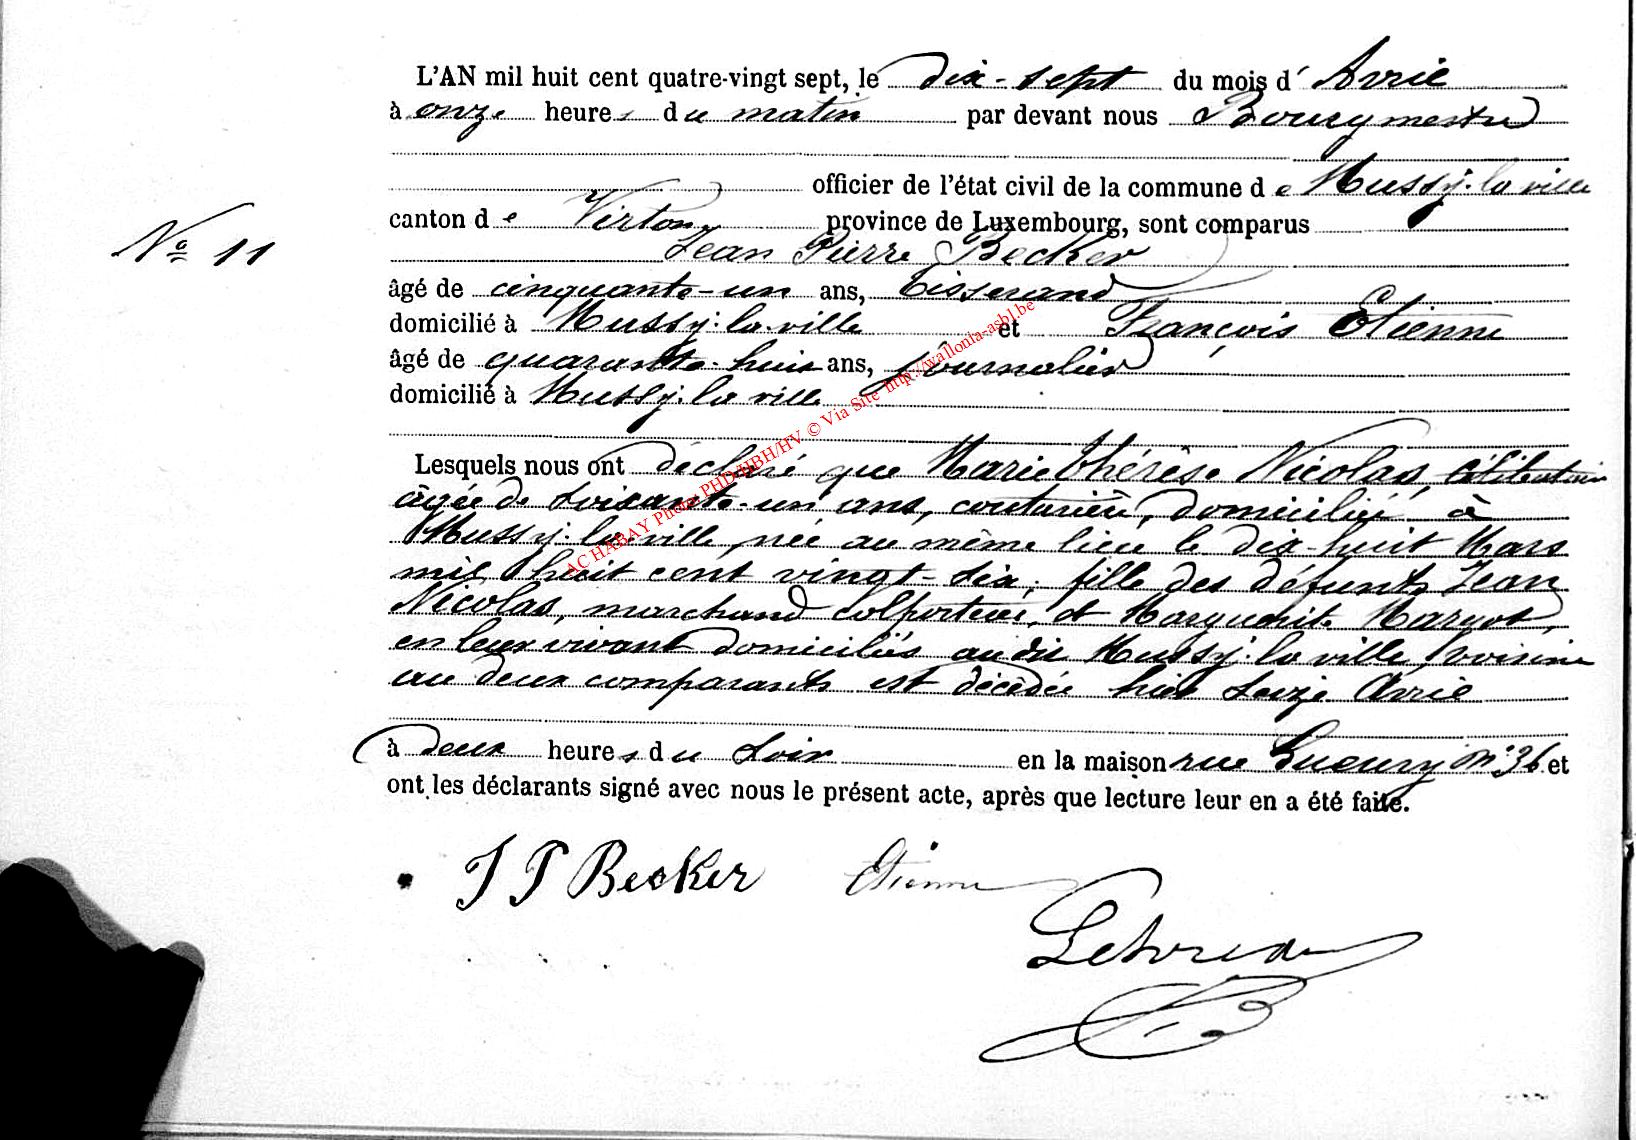 L'AN mil huit cent quatre-vingt sept, le dix-sept du mois d' Avril
à onze heures du matin par devant nous Bourgmestre
officier de l'état civil de la commune de Mussy-la-ville
N° 11
canton de Virton province de Luxembourg, sont comparus
Jean Pierre Becker
âgé de cinquante-un ans, tisserand
domicilié à Mussy-la-ville et François Etienne
âgé de quarante-huit ans, journalier
domicilié à Mussy-la-ville
Lesquels nous ont déclaré que Marie Thérèse Nicolas, célibataire
âgée de soixante-un ans, couturière, domiciliée à
Mussy-la-ville, née au même lieu le dix-huit Mars
mil huit cent vingt-six, fille des défunts Jean
Nicolas, marchand colporteur, et Marguerite Margot,
en leur vivant domiciliés au dit Mussy-la-ville, voisine
au deux comparants est décédée hier seize Avril
à deux heures du soir en la maison rue n° 36 et
ont les déclarants signé avec nous le présent acte, après que lecture leur en a été faite.
J P Becker Etienne
AC HABAY Photos PHD/HBH/HV © Via Site http://wallonia-asbl.be